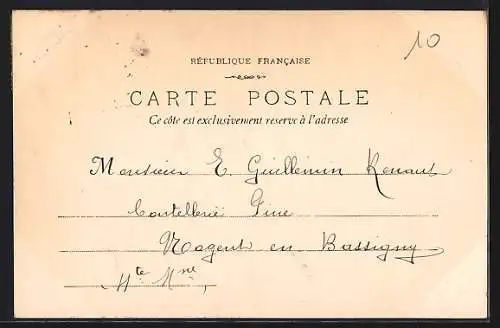 10
RÉPUBLIQUE FRANÇAISE
CARTE POSTALE
Ce côté est exclusivement réservé à l'adresse
Monsieur E. Guillemin Renaut
Coutellerie Fine
Nogent en Bassigny
Hte Mne